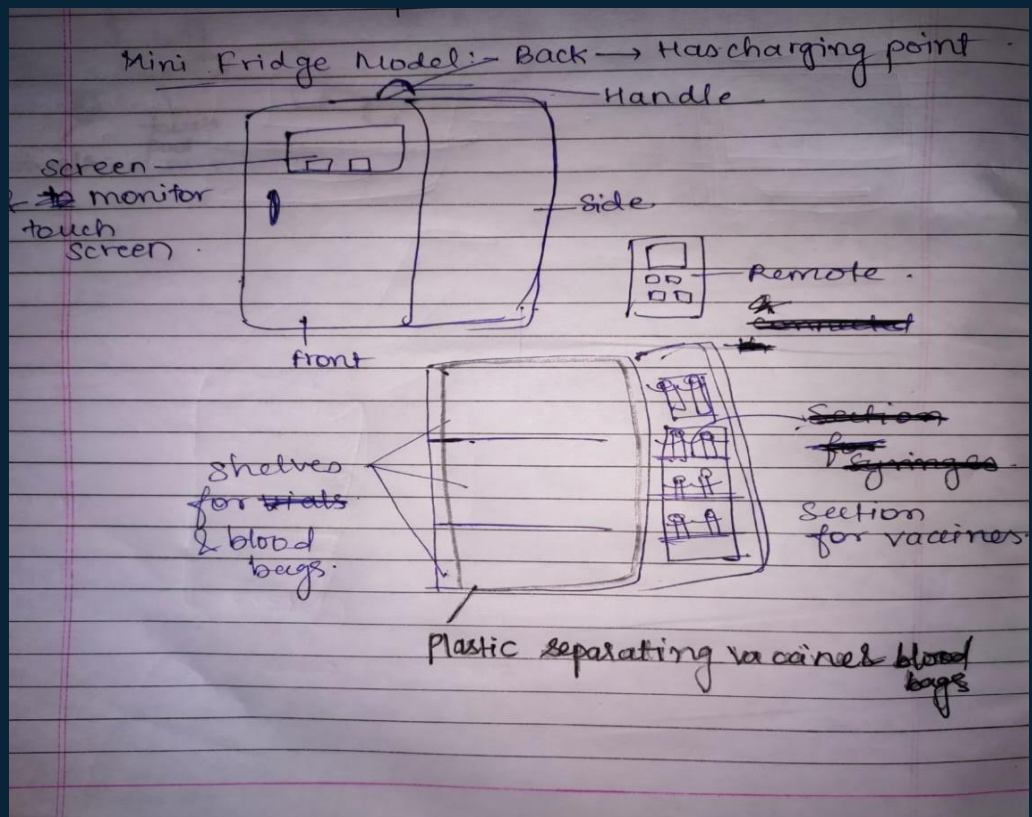 Mini Fridge Model:- Back → Has charging point
Handle
Screen
& monitor
touch
screen.
Side
Remote.
&
connected
front
Section
for
syringes
Shelves
for vials
& blood
bags.
Section
for vaccines
Plastic separating vaccine & blood
bags